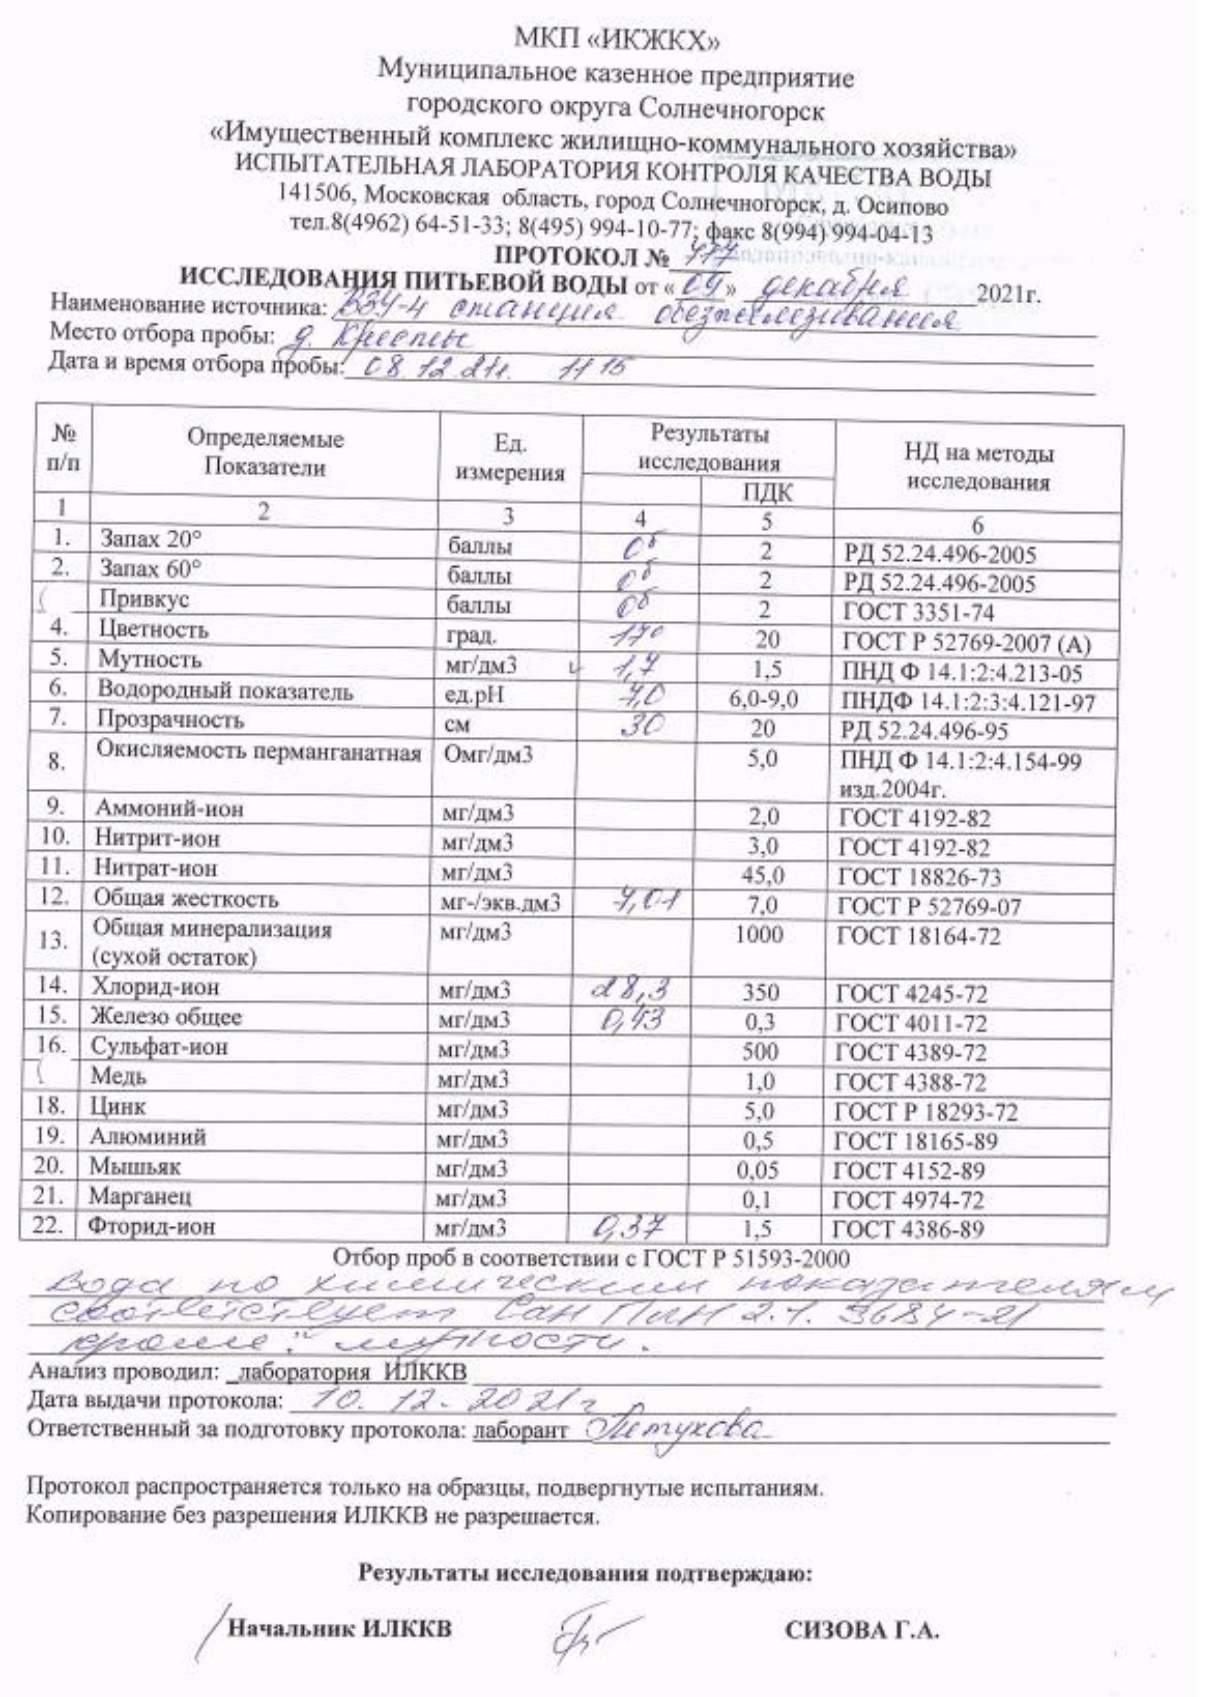 МКП «ИКЖКХ»
Муниципальное казенное предприятие
городского округа Солнечногорск
«Имущественный комплекс жилищно-коммунального хозяйства»
ИСПЫТАТЕЛЬНАЯ ЛАБОРАТОРИЯ КОНТРОЛЯ КАЧЕСТВА ВОДЫ
141506, Московская область, город Солнечногорск, д. Осипово
тел.8(4962) 64-51-33; 8(495) 994-10-77; факс 8(994) 994-04-13
ПРОТОКОЛ №
ИССЛЕДОВАНИЯ ПИТЬЕВОЙ ВОДЫ от «09» декабря 2021г.
Наименование источника: ВЗУ-4 станция обезжелезивания
Место отбора пробы: д.
Дата и время отбора пробы: 08.12.21г. 11 15
№ п/п Определяемые Показатели Ед. измерения Результаты исследования ПДК НД на методы исследования
1 2 3 4 5 6
1. Запах 20° баллы 0б 2 РД 52.24.496-2005
2. Запах 60° баллы 0б 2 РД 52.24.496-2005
Привкус баллы 0б 2 ГОСТ 3351-74
4. Цветность град. 17° 20 ГОСТ Р 52769-2007 (А)
5. Мутность мг/дм3 1,7 1,5 ПНД Ф 14.1:2:4.213-05
6. Водородный показатель ед.pH 7,0 6,0-9,0 ПНДФ 14.1:2:3:4.121-97
7. Прозрачность см 30 20 РД 52.24.496-95
8. Окисляемость перманганатная Омг/дм3 5,0 ПНД Ф 14.1:2:4.154-99 изд.2004г.
9. Аммоний-ион мг/дм3 2,0 ГОСТ 4192-82
10. Нитрит-ион мг/дм3 3,0 ГОСТ 4192-82
11. Нитрат-ион мг/дм3 45,0 ГОСТ 18826-73
12. Общая жесткость мг-/экв.дм3 7,01 7,0 ГОСТ Р 52769-07
13. Общая минерализация (сухой остаток) мг/дм3 1000 ГОСТ 18164-72
14. Хлорид-ион мг/дм3 28,3 350 ГОСТ 4245-72
15. Железо общее мг/дм3 0,3 ГОСТ 4011-72
16. Сульфат-ион мг/дм3 500 ГОСТ 4389-72
Медь мг/дм3 1,0 ГОСТ 4388-72
18. Цинк мг/дм3 5,0 ГОСТ Р 18293-72
19. Алюминий мг/дм3 0,5 ГОСТ 18165-89
20. Мышьяк мг/дм3 0,05 ГОСТ 4152-89
21. Марганец мг/дм3 0,1 ГОСТ 4974-72
22. Фторид-ион мг/дм3 0,37 1,5 ГОСТ 4386-89
Отбор проб в соответствии с ГОСТ Р 51593-2000
Вода по химическим показателям
соответствует СанПиН 2.1.3684-21
кроме: мутности.
Анализ проводил: лаборатория ИЛККВ
Дата выдачи протокола: 10.12.2021г
Ответственный за подготовку протокола: лаборант Петухова
Протокол распространяется только на образцы, подвергнутые испытаниям.
Копирование без разрешения ИЛККВ не разрешается.
Результаты исследования подтверждаю:
Начальник ИЛККВ СИЗОВА Г.А.